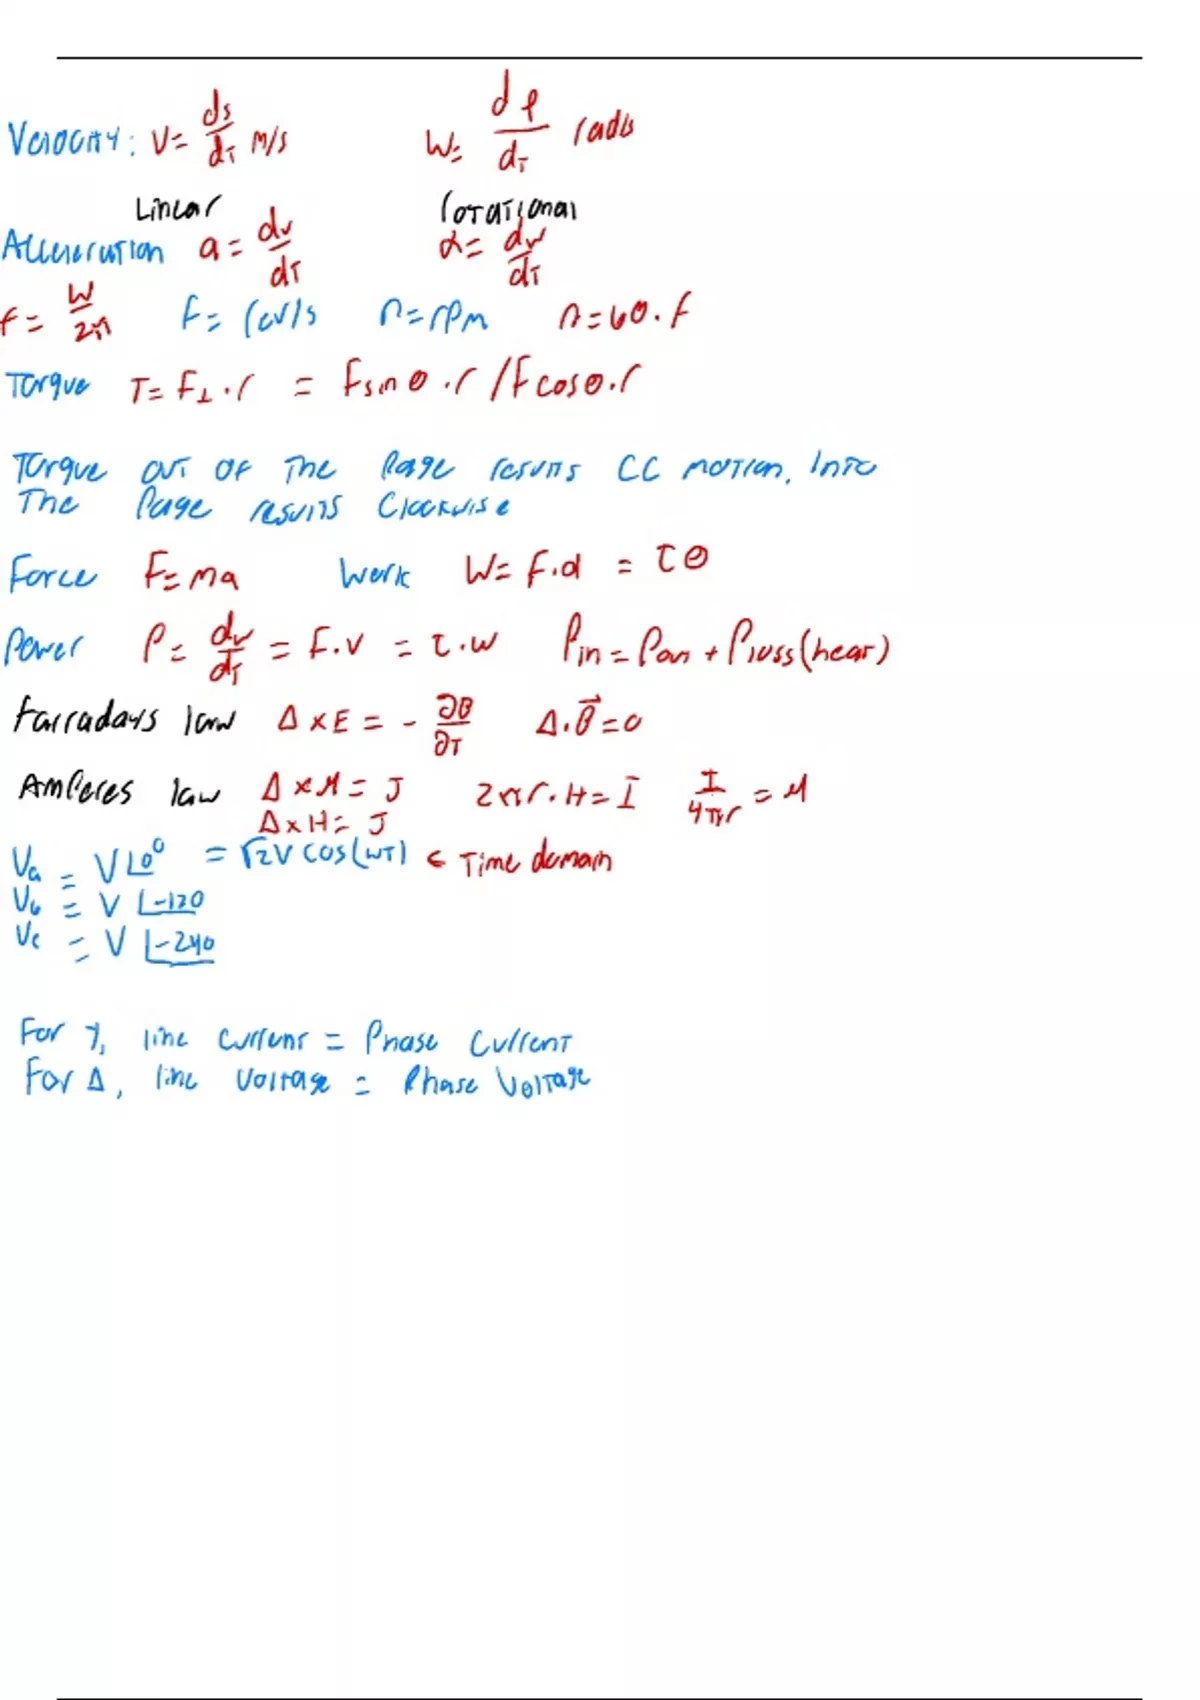 Velocity: V = ds/dT M/s    W = dφ/dT rad/s
Linear    rotational
Acceleration a = dv/dT    α = dw/dT
f = W/2π    F = rev/s    n = rpm    n = 60·f
Torque T = F⊥·r = Fsinθ·r / Fcosθ·r
Torque out of The Page results CC motion. Into
The Page results Clockwise
Force F = ma    Work W = F·d = τθ
Power P = dw/dT = F·V = τ·w    Pin = Pout + Ploss (heat)
Farradays law Δ × E = - ∂B/∂T    Δ·B⃗ = 0
Amperes law Δ × H = J    2πr·H = I    I/4πr = H
Δ × H = J
Va = V∠0° = √2V cos(wT) ← Time domain
Vb = V∠-120
Vc = V∠-240
For Y, line current = Phase Current
For Δ, line voltage = Phase Voltage